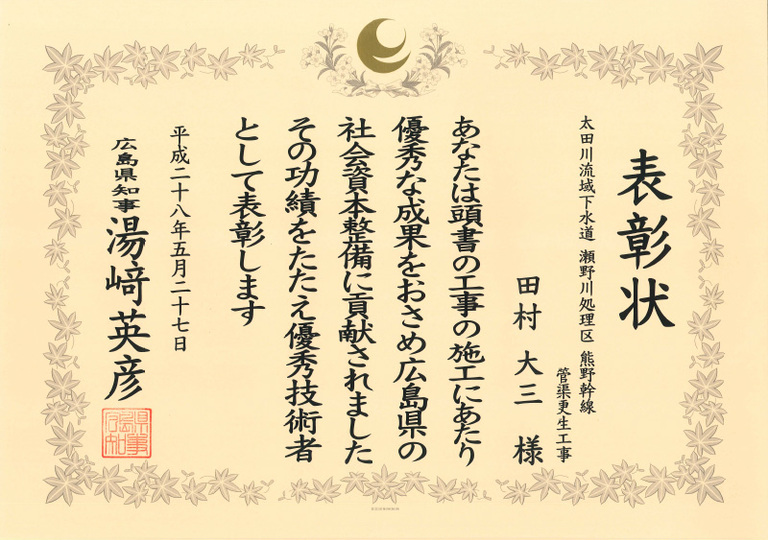 表彰状
太田川流域下水道 瀬野川処理区 熊野幹線
管渠更生工事
田村 大三 様
あなたは頭書の工事の施工にあたり
優秀な成果をおさめ広島県の
社会資本整備に貢献されました
その功績をたたえ優秀技術者
として表彰します
平成二十八年五月二十七日
広島県知事 湯﨑英彦
広島県知事